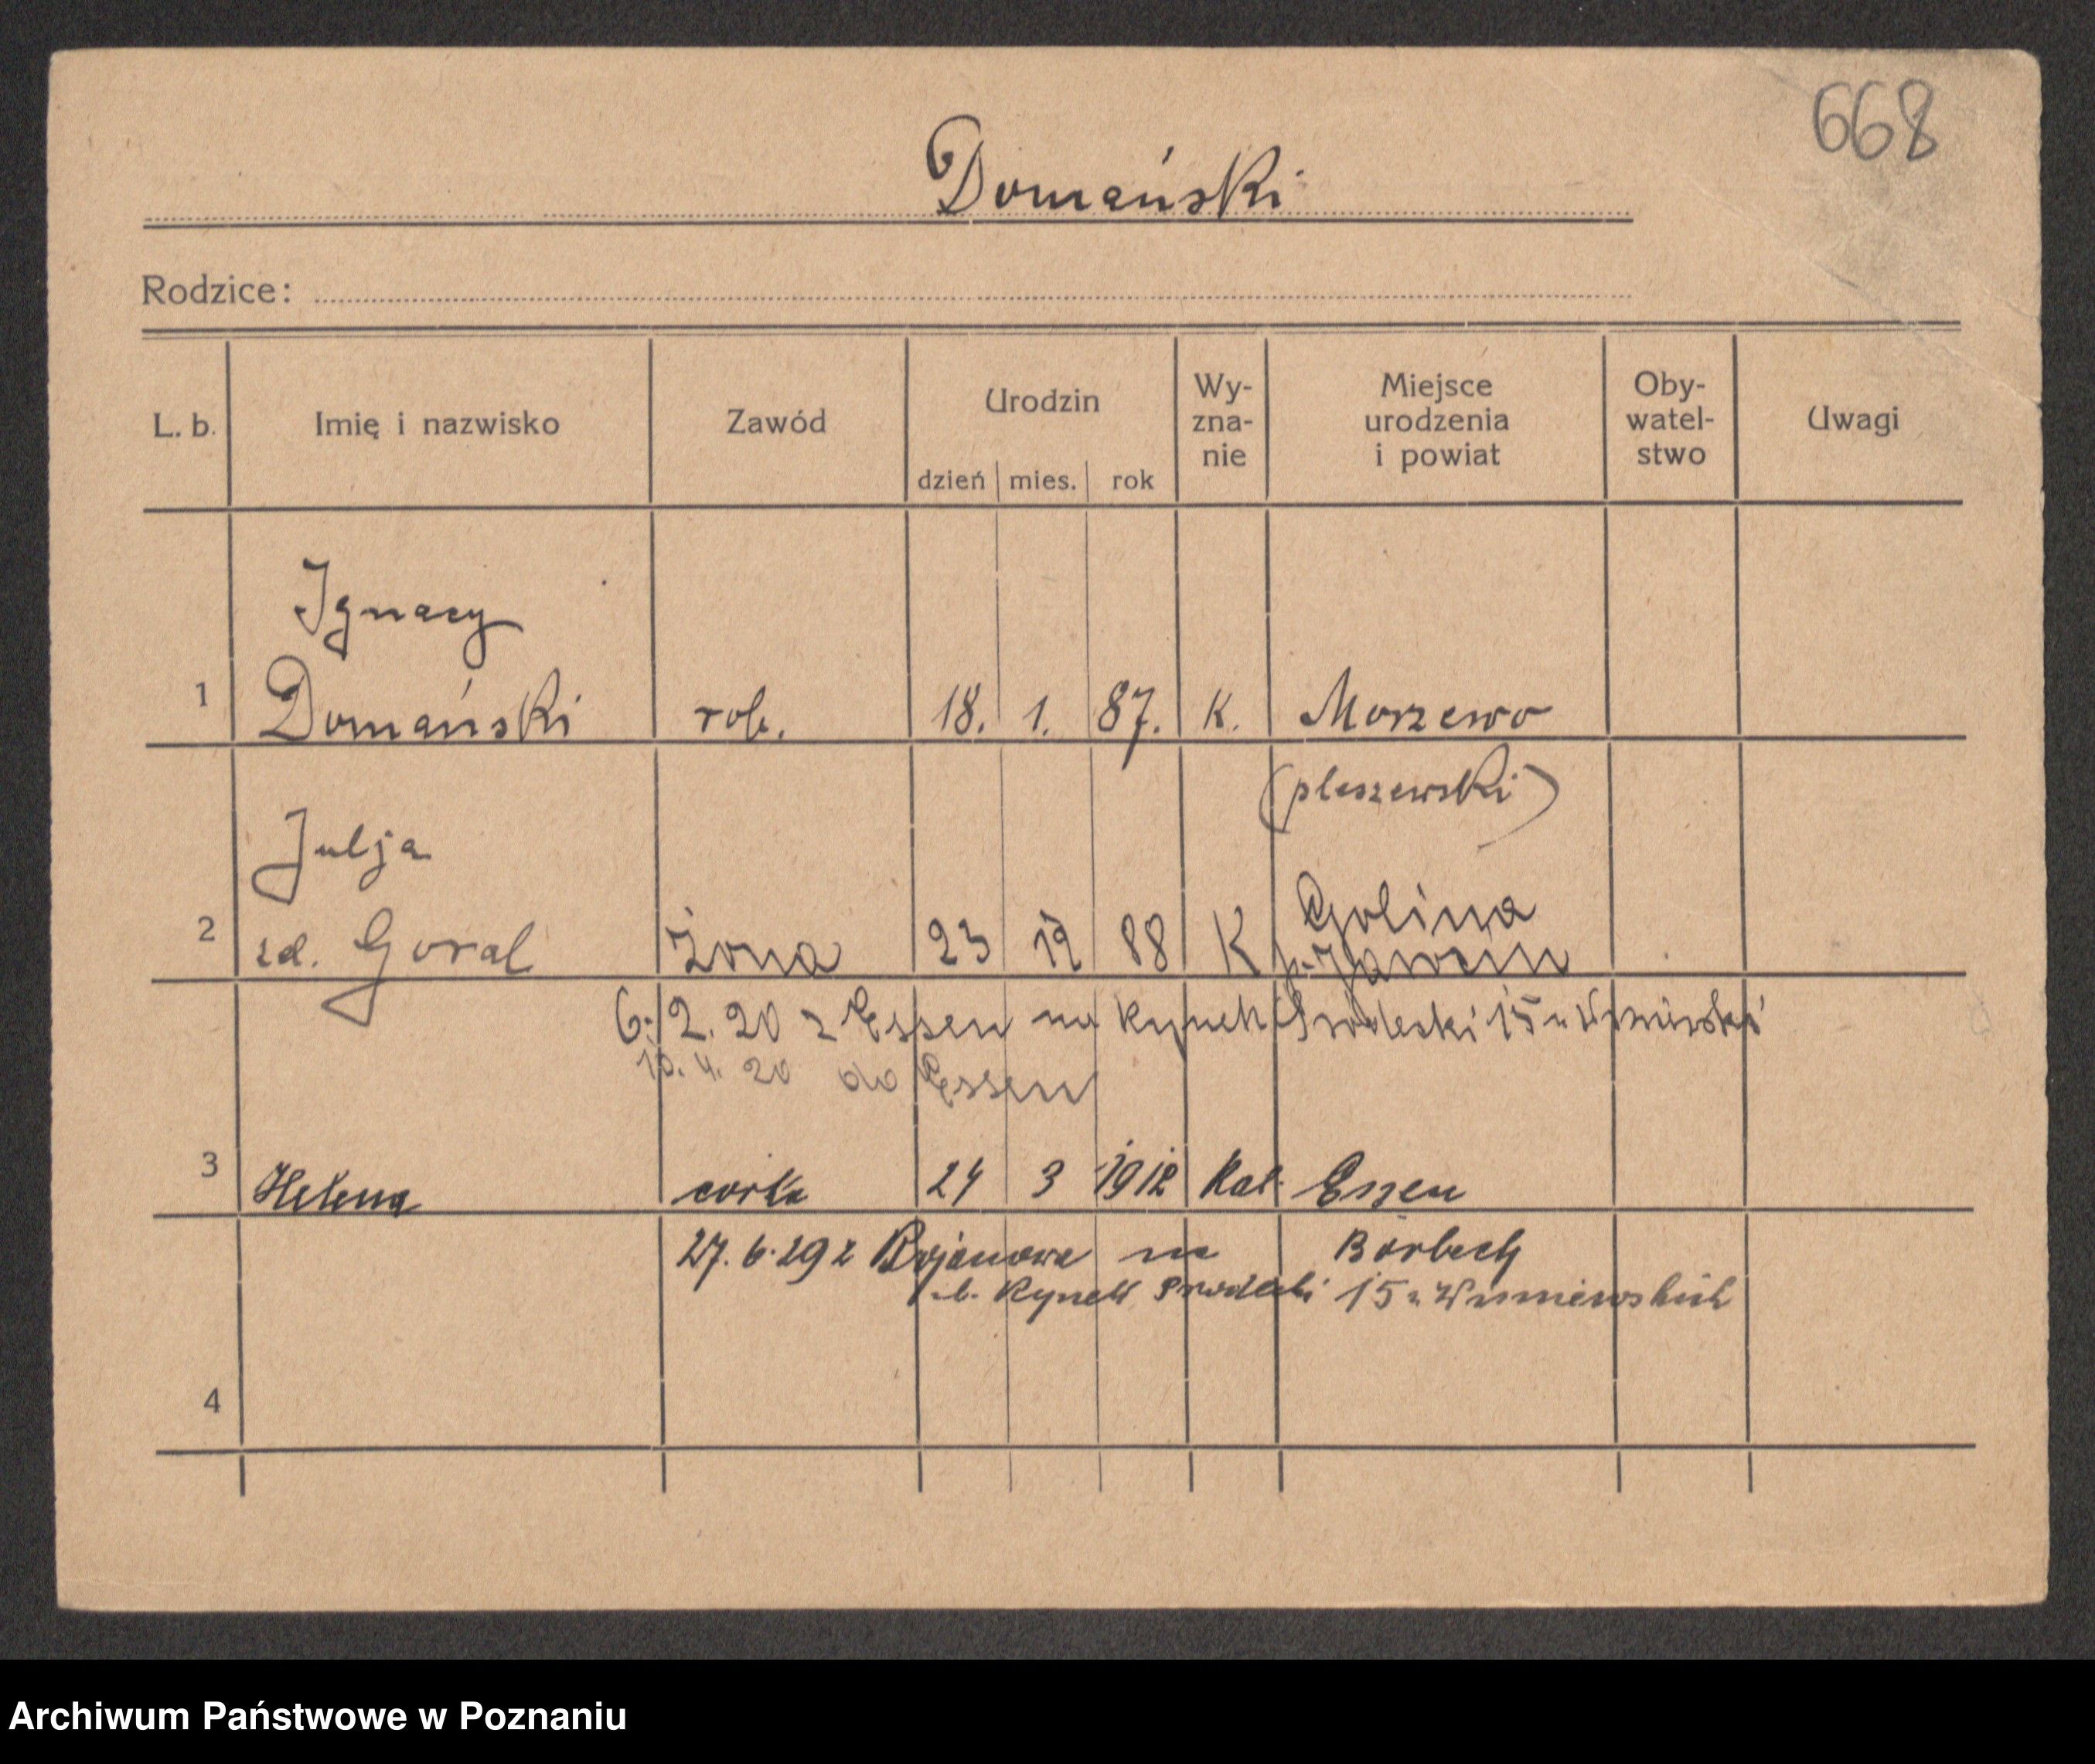 668
Domański
Rodzice:
L. b. Imię i nazwisko Zawód Urodzin Wy-zna-nie Miejsce urodzenia i powiat Oby-watel-stwo Uwagi
dzień mies. rok
Ignacy
1 Domański rob. 18. 1. 87. K. Morzewo
(pleszewski)
Julja
Golina
2 zd. Goral żona 23 12 88 K
6. 2. 20 z Essen na Rynek Śródecki 15 u
10. 4. 20 do Essen
3 Helena córka 24 3 1912 Kat. Essen
27. 6. 29 z Bojanowa na Borbeck
Rynek Śródecki 15 u Wiśniewskich
4
Archiwum Państwowe w Poznaniu